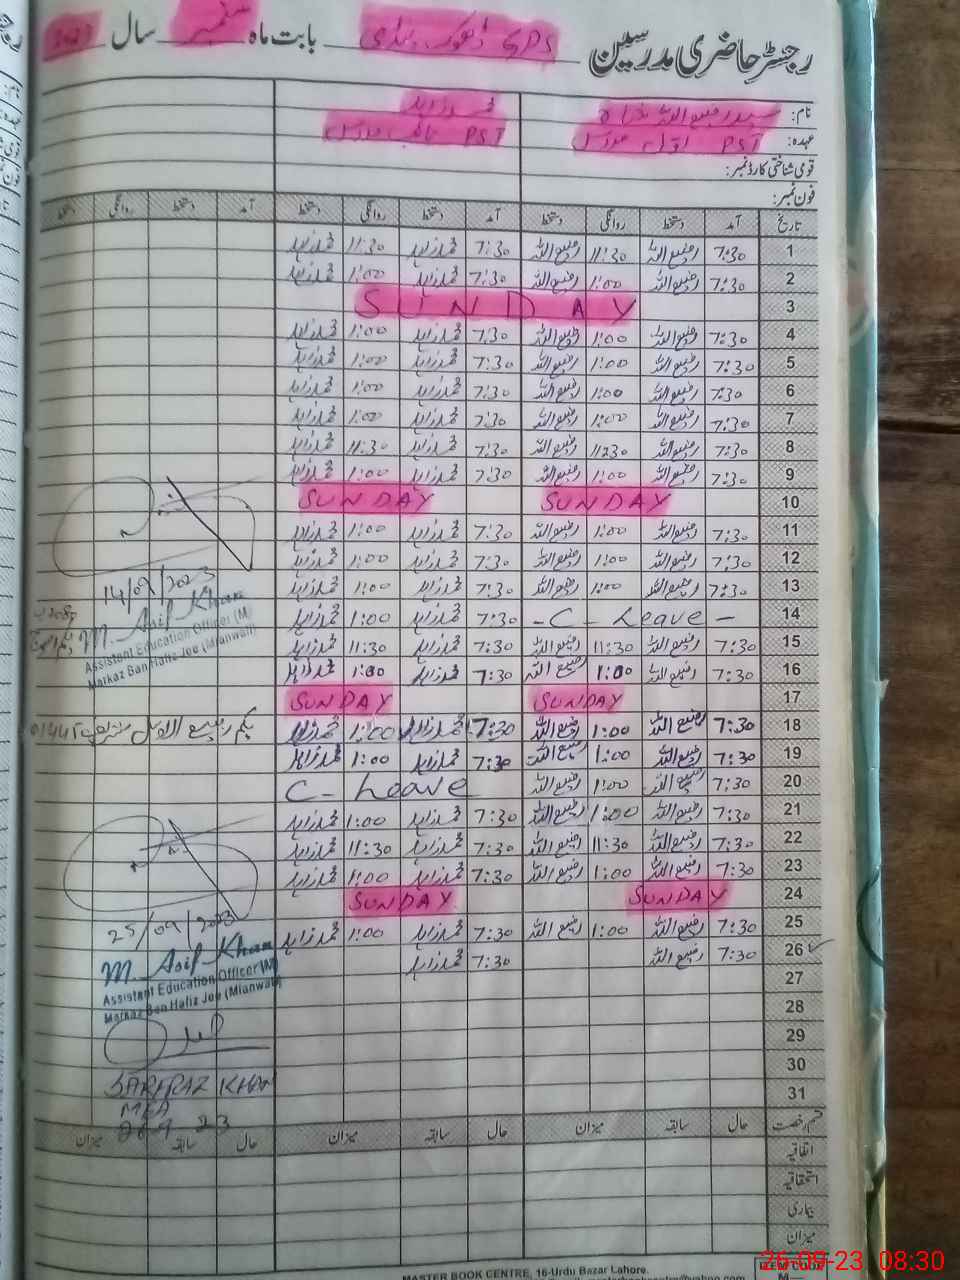 رجسٹر حاضری مدرسین GPS ڈھوک بابت ماہ ستمبر سال 2023
نام: سید رفیع اللہ شاہ محمد زاہد
عہدہ: PST اول مدرس PST نائب مدرس
قومی شناختی کارڈ نمبر:
فون نمبر:
تاریخ آمد دستخط روانگی دستخط آمد دستخط روانگی دستخط آمد دستخط روانگی دستخط
1 7:30 رفیع اللہ 11:30 رفیع اللہ 7:30 محمد زاہد 11:30 محمد زاہد
2 7:30 رفیع اللہ 1:00 رفیع اللہ 7:30 محمد زاہد 1:00 محمد زاہد
3 SUNDAY
4 7:30 رفیع اللہ 1:00 رفیع اللہ 7:30 محمد زاہد 1:00 محمد زاہد
5 7:30 رفیع اللہ 1:00 رفیع اللہ 7:30 محمد زاہد 1:00 محمد زاہد
6 7:30 رفیع اللہ 1:00 رفیع اللہ 7:30 محمد زاہد 1:00 محمد زاہد
7 7:30 رفیع اللہ 1:00 رفیع اللہ 7:30 محمد زاہد 1:00 محمد زاہد
8 7:30 رفیع اللہ 11:30 رفیع اللہ 7:30 محمد زاہد 11:30 محمد زاہد
9 7:30 رفیع اللہ 1:00 رفیع اللہ 7:30 محمد زاہد 1:00 محمد زاہد
10 SUNDAY SUNDAY
11 7:30 رفیع اللہ 1:00 رفیع اللہ 7:30 محمد زاہد 1:00 محمد زاہد
12 7:30 رفیع اللہ 1:00 رفیع اللہ 7:30 محمد زاہد 1:00 محمد زاہد
13 7:30 رفیع اللہ 1:00 رفیع اللہ 7:30 محمد زاہد 1:00 محمد زاہد
14 - C - Leave - 7:30 محمد زاہد 1:00 محمد زاہد
15 7:30 رفیع اللہ 11:30 رفیع اللہ 7:30 محمد زاہد 11:30 محمد زاہد
16 7:30 رفیع اللہ 1:00 رفیع اللہ 7:30 محمد زاہد 1:00 محمد زاہد
17 SUNDAY SUNDAY
18 7:30 رفیع اللہ 1:00 رفیع اللہ 7:30 محمد زاہد 1:00 محمد زاہد یکم ربیع الاول
19 7:30 رفیع اللہ 1:00 رفیع اللہ 7:30 محمد زاہد 1:00 محمد زاہد
20 7:30 رفیع اللہ 1:00 رفیع اللہ C - Leave
21 7:30 رفیع اللہ 1:00 رفیع اللہ 7:30 محمد زاہد 1:00 محمد زاہد
22 7:30 رفیع اللہ 11:30 رفیع اللہ 7:30 محمد زاہد 11:30 محمد زاہد
23 7:30 رفیع اللہ 1:00 رفیع اللہ 7:30 محمد زاہد 1:00 محمد زاہد
24 SUNDAY SUNDAY
25 7:30 رفیع اللہ 1:00 رفیع اللہ 7:30 محمد زاہد 1:00 محمد زاہد
26 7:30 رفیع اللہ 7:30 محمد زاہد
27
28
29
30
31
14/09/2023
M. Asif Khan
Assistant Education Officer (M)
Markaz Ban Hafiz Jee (Mianwali)
25/09/2023
M. Asif Khan
Assistant Education Officer (M)
Markaz Ban Hafiz Jee (Mianwali)
SARFRAZ KHAN
MEA
26-9-23
قسم رخصت حال سابقہ میزان حال سابقہ میزان حال سابقہ میزان
اتفاقیہ
استحقاقیہ
بیماری
میزان
MASTER BOOK CENTRE, 16-Urdu Bazar Lahore.
26-09-23 08:30